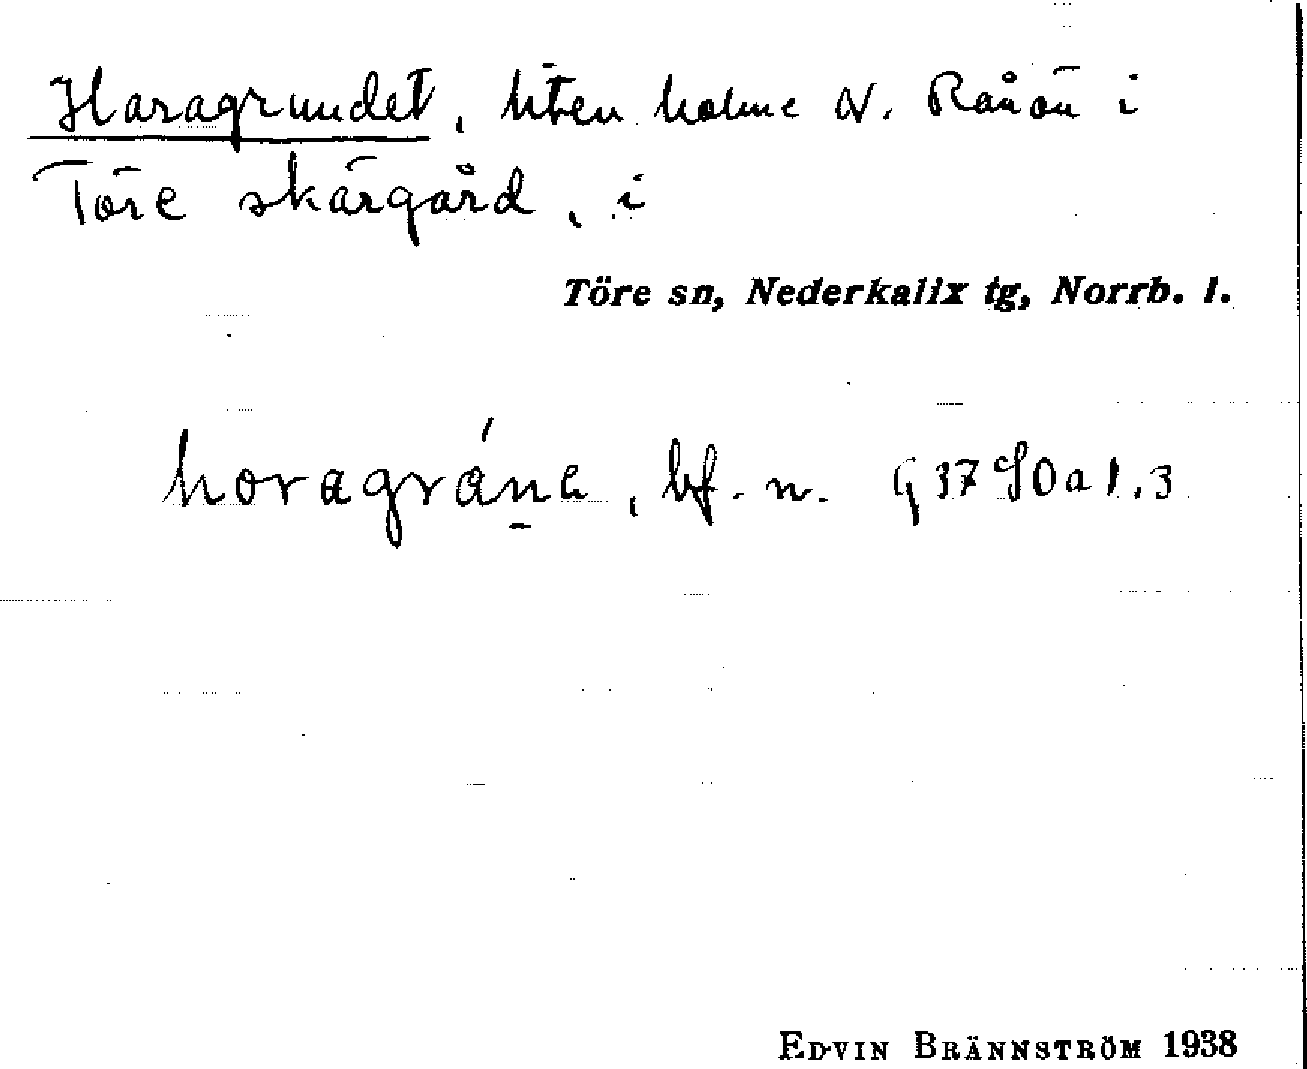 Haragrundet, liten holme N. Rånön i
Töre skärgård, i
Töre sn, Nederkalix tg, Norrb. l.
horagrána, bf. n. § 37
EDVIN BRÄNNSTRÖM 1938